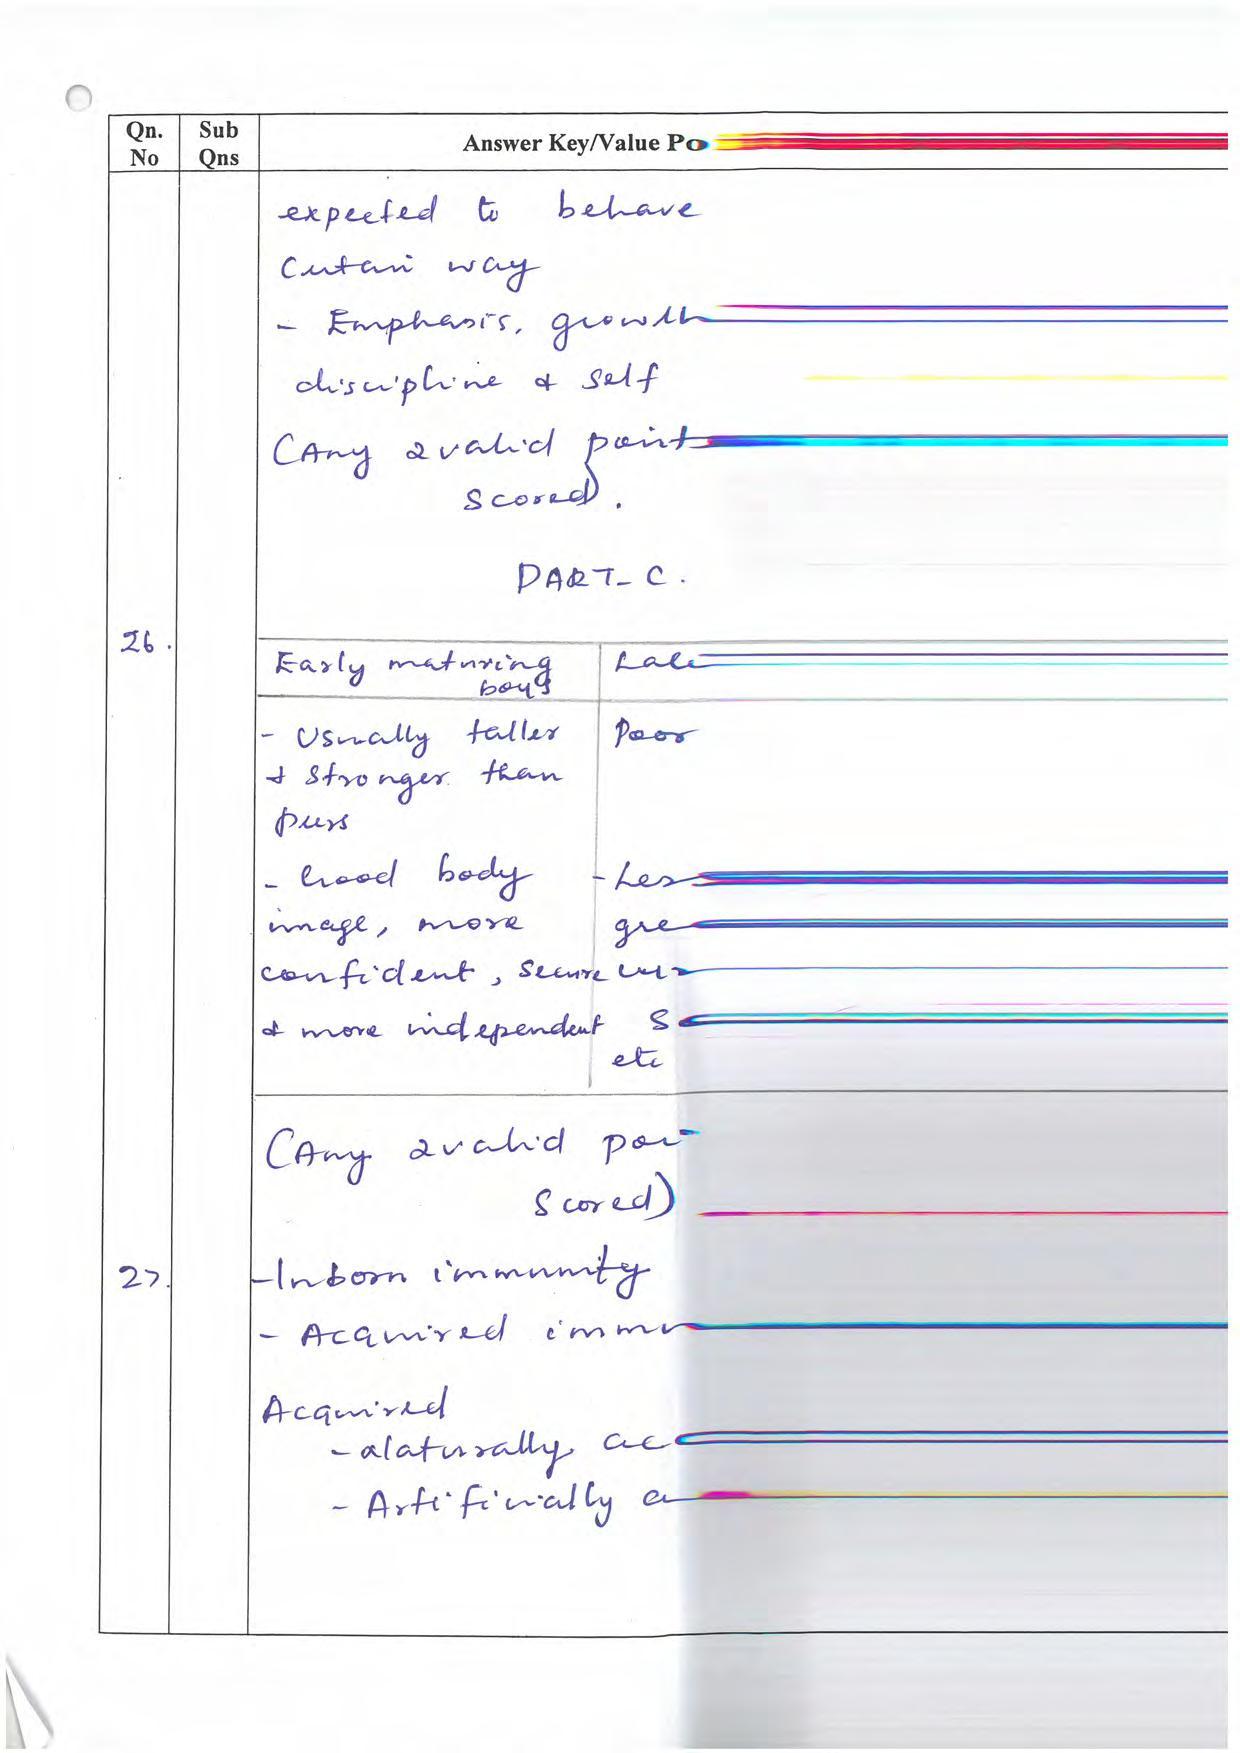 Qn. No
Sub Qns
Answer Key/Value Po
expected to behave
way
- Emphasis, growth
discipline & self
(Any 2 valid point
scored).
PART-C.
26.
Early maturing boys
Late
- Usually taller
& stronger than
peers
Poor
- Good body
image, more
confident, secure
& more independent
- Les
gre
S
etc
(Any 2 valid poi
scored)
27.
- Inborn immunity
- Acquired immu
Acquired
- Naturally ac
- Artificially a